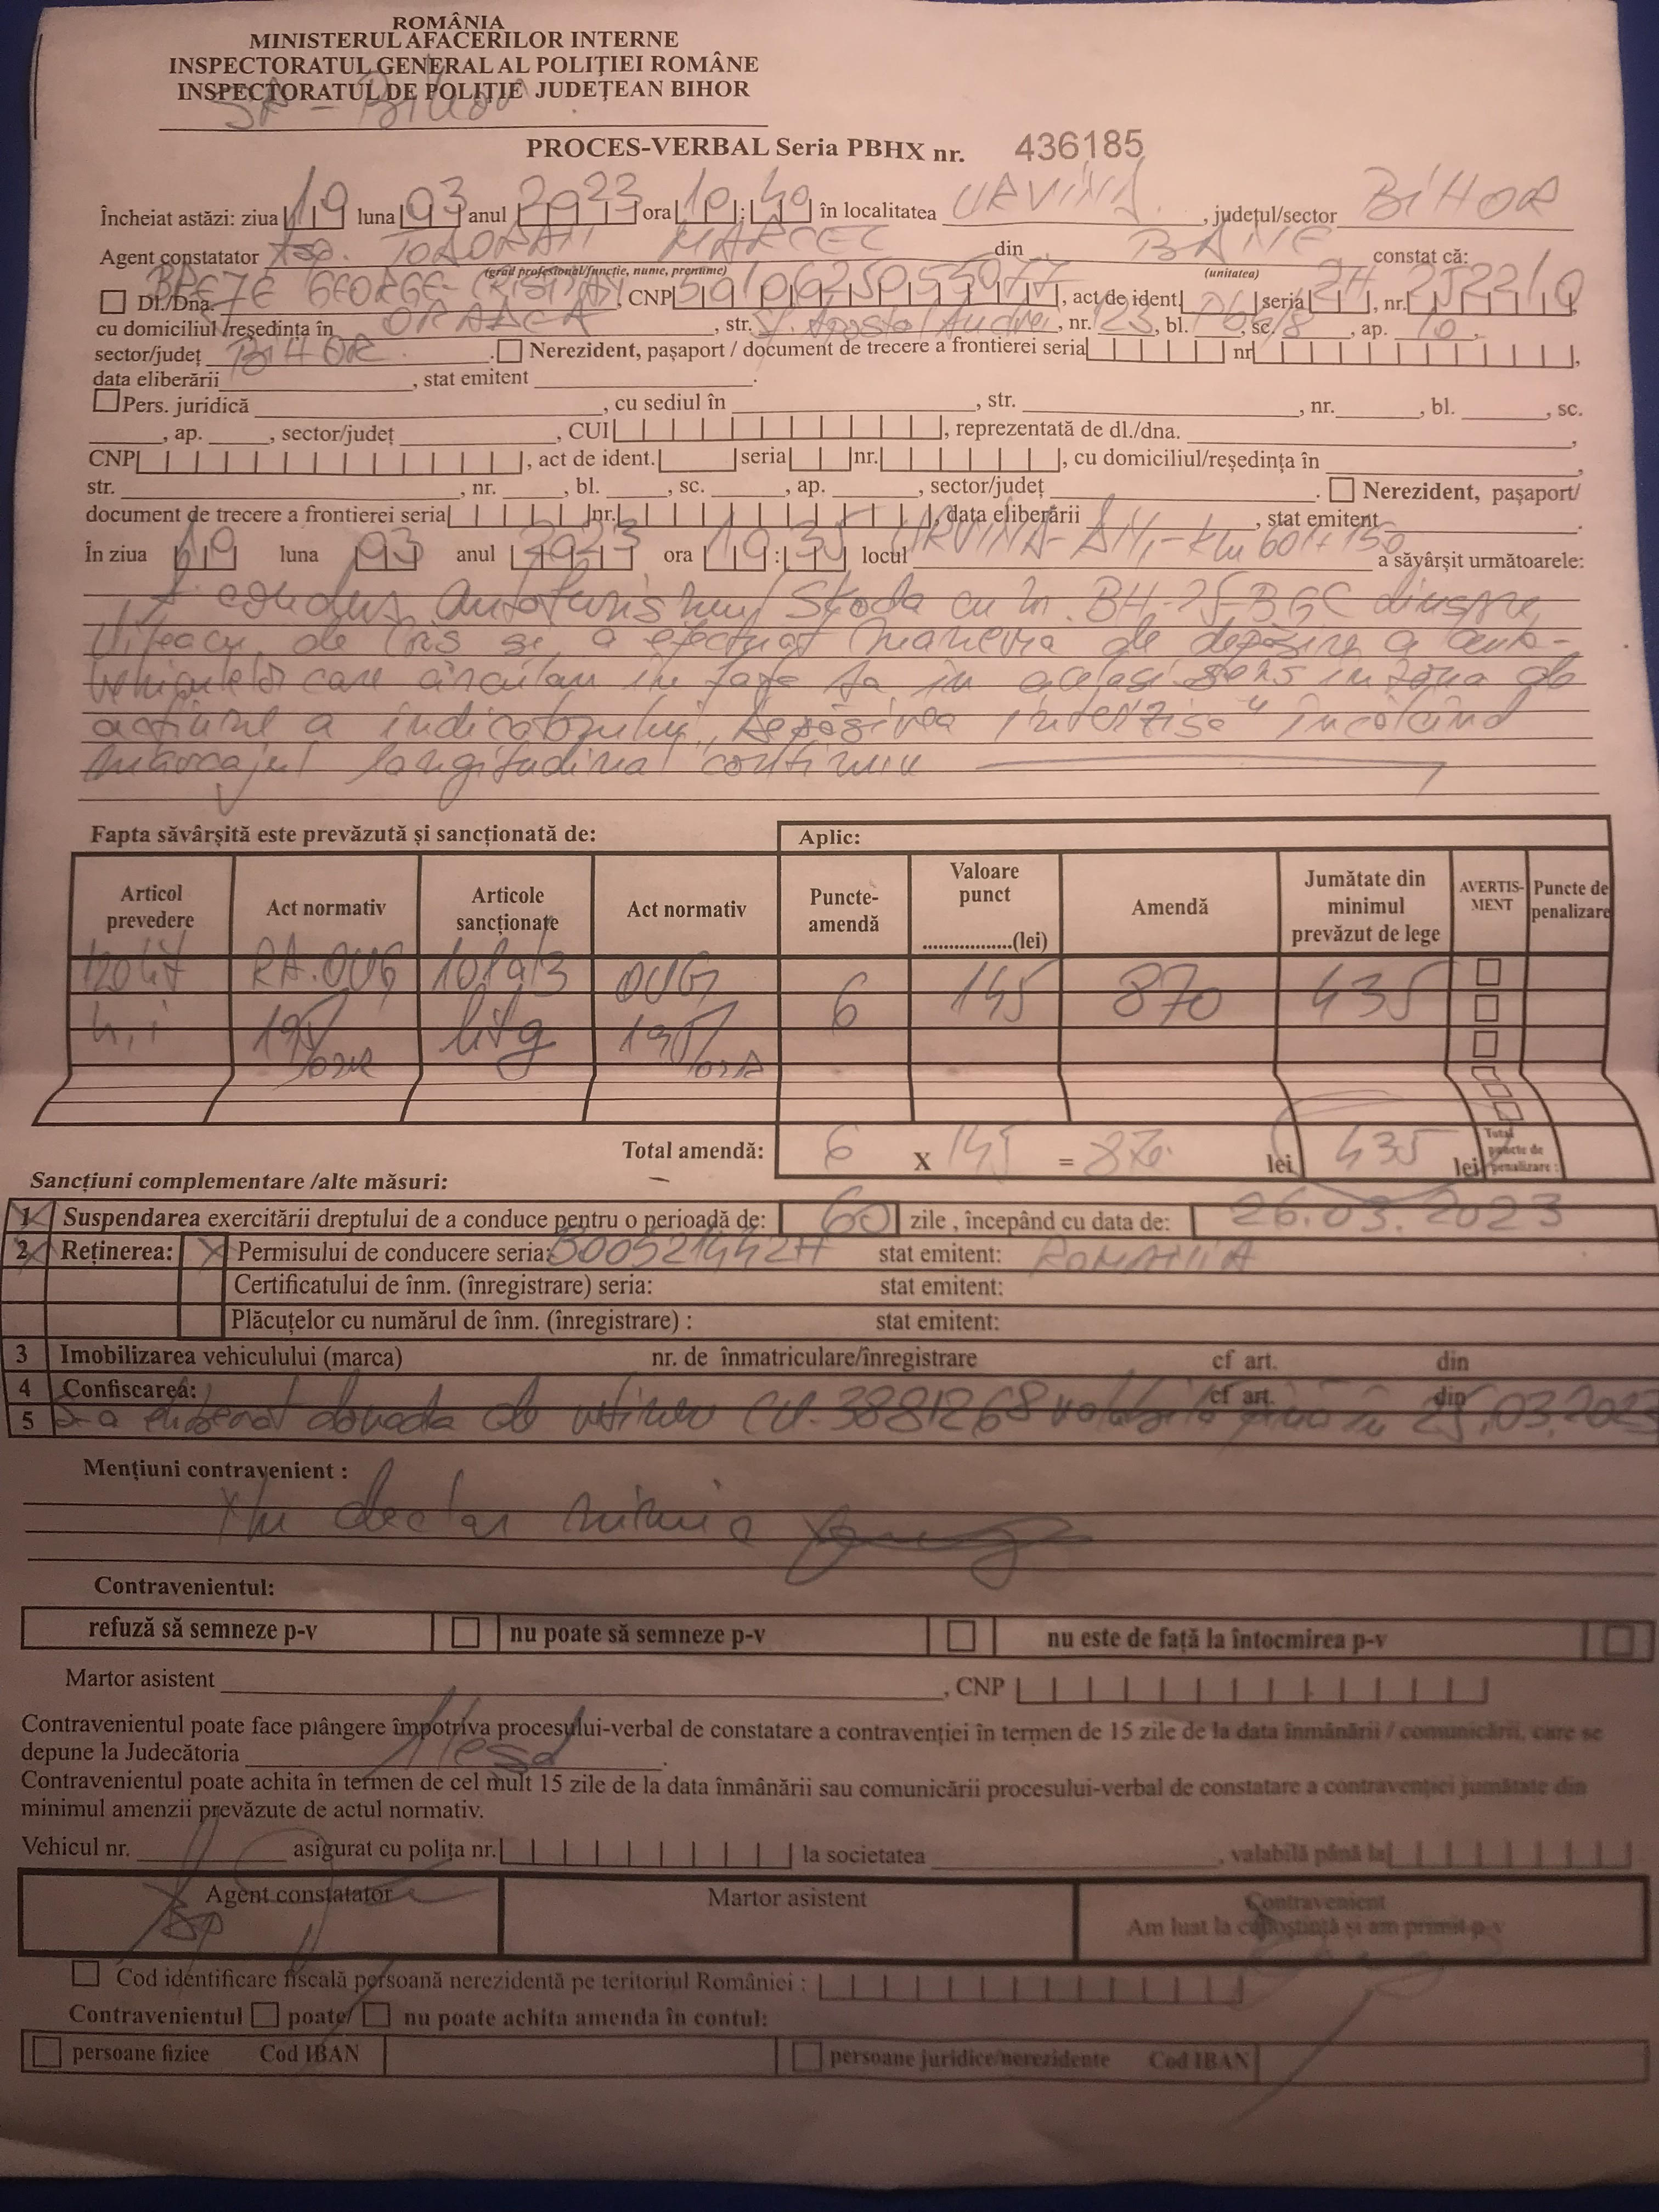 ROMÂNIA
MINISTERUL AFACERILOR INTERNE
INSPECTORATUL GENERAL AL POLIŢIEI ROMÂNE
INSPECTORATUL DE POLIŢIE JUDEŢEAN BIHOR
SR - Bihor
PROCES-VERBAL Seria PBHX nr. 436185
Încheiat astăzi: ziua 19 luna 03 anul 2023 ora 10:40 în localitatea URVIND, judeţul/sector BIHOR
Agent constatator MARCEL din constat că:
(grad profesional/funcţie, nume, prenume) (unitatea)
Dl./Dna. GEORGE-, CNP, act de ident. seria ZH, nr.
cu domiciliul /reşedinţa în ORADEA, str. Sf. Apostol Andrei, nr. 23, bl., sc., ap. 10,
sector/judeţ BIHOR. Nerezident, paşaport / document de trecere a frontierei seria nr,
data eliberării, stat emitent.
Pers. juridică, cu sediul în, str., nr., bl., sc.
, ap., sector/judeţ, CUI, reprezentată de dl./dna.,
CNP, act de ident. seria nr., cu domiciliul/reşedinţa în,
str., nr., bl., sc., ap., sector/judeţ. Nerezident, paşaport/
document de trecere a frontierei seria nr., data eliberării, stat emitent.
În ziua 19 luna 03 anul 2023 ora : 35 locul URVIND-DN1-km 601+150 a săvârşit următoarele:
A condus autoturismul Skoda cu nr. BH-25-BGC dinspre
de Criș și a efectuat manevra de depășire a auto-
vehiculelor care circulau în fața sa, în același sens în zona de
acțiune a indicatorului „Depășirea interzisă" încălcând
marcajul longitudinal continuu
Fapta săvârşită este prevăzută şi sancţionată de: Aplic:
Articol prevedere Act normativ Articole sancţionate Act normativ Puncte-amendă Valoare punct ..................(lei) Amendă Jumătate din minimul prevăzut de lege AVERTIS-MENT Puncte de penalizare
120 lit RA.OUG 101 al 3 OUG 6 145 870 435
h, i 195/02R lit g 195/02R
Total amendă: 6 X 145 = 870 lei 435 lei Total puncte de penalizare:
Sancţiuni complementare /alte măsuri:
1 Suspendarea exercitării dreptului de a conduce pentru o perioadă de: 60 zile , începând cu data de: 26.03.2023
2 Reţinerea: X Permisului de conducere seria: B00521442H stat emitent: ROMANIA
Certificatului de înm. (înregistrare) seria: stat emitent:
Plăcuţelor cu numărul de înm. (înregistrare) : stat emitent:
3 Imobilizarea vehiculului (marca) nr. de înmatriculare/înregistrare cf art. din
4 Confiscarea: cf art. din
5 S-a eliberat dovada de reținere 3881268 valabilă până în 25.03.2023
Menţiuni contravenient :
Nu declar nimic
Contravenientul:
refuză să semneze p-v nu poate să semneze p-v nu este de faţă la întocmirea p-v
Martor asistent, CNP
Contravenientul poate face plângere împotriva procesului-verbal de constatare a contravenţiei în termen de 15 zile de la data înmânării / comunicării, care se
depune la Judecătoria Aleșd.
Contravenientul poate achita în termen de cel mult 15 zile de la data înmânării sau comunicării procesului-verbal de constatare a contravenţiei jumătate din
minimul amenzii prevăzute de actul normativ.
Vehicul nr. asigurat cu poliţa nr. la societatea, valabilă până la
Agent constatator Martor asistent Contravenient
Am luat la cunoştinţă şi am primit p-v
Cod identificare fiscală persoană nerezidentă pe teritoriul României :
Contravenientul poate/ nu poate achita amenda în contul:
persoane fizice Cod IBAN persoane juridice/nerezidente Cod IBAN